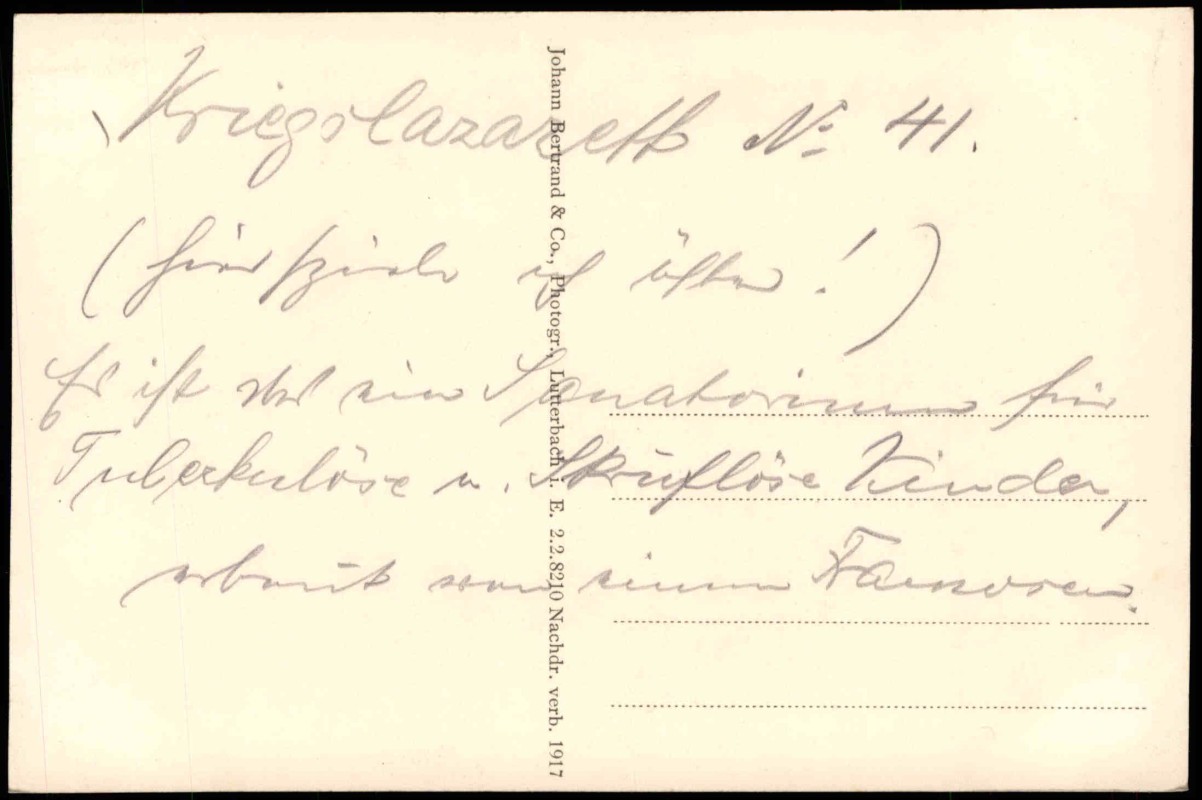 Kriegslazarett No 41.
(hier spiele ich öfter!)
Es ist das ein Sanatorium für
Tuberkulöse u. Skruflöse Kinder,
erbaut von einem Franzosen.
Johann Bertrand & Co., Photogr., Lutterbach i. E. 2.2.8210 Nachdr. verb. 1917